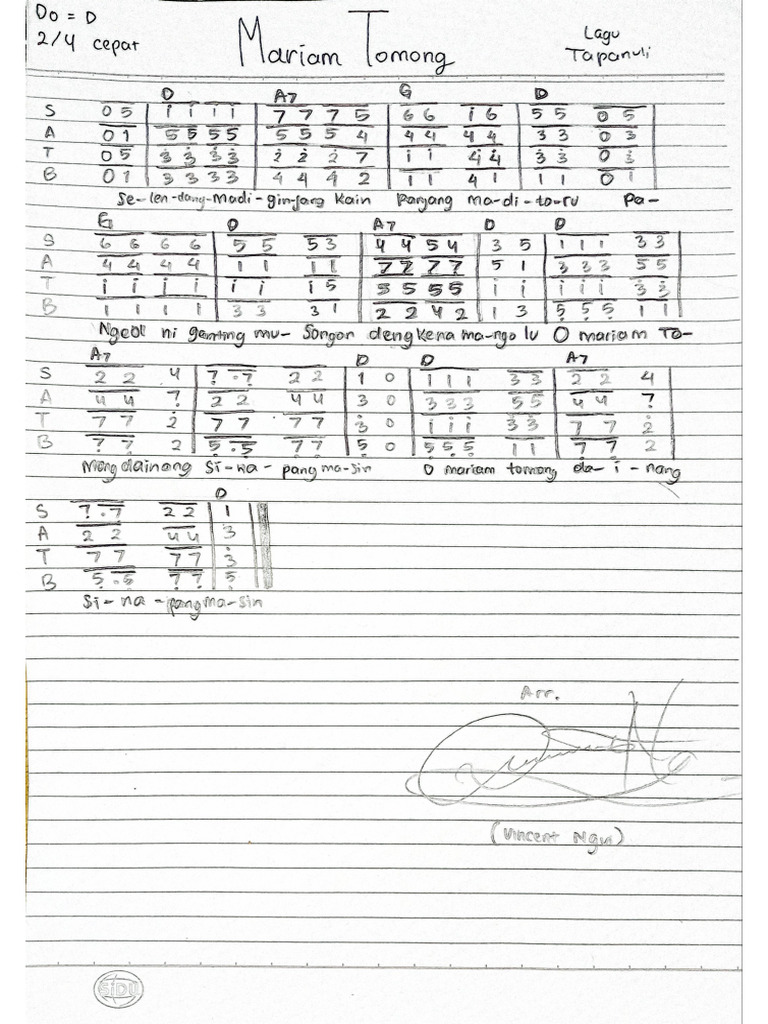 Do = D
2/4 cepat
Mariam Tomong
Lagu
Tapanuli
D A7 G D
S 0 5 | i i i i | 7 7 7 5 | 6 6 i 6 | 5 5 0 5
A 0 1 | 5 5 5 5 | 5 5 5 4 | 4 4 4 4 | 3 3 0 3
T 0 5 | 3̇ 3̇ 3̇ 3̇ | 2̇ 2̇ 2̇ 7 | i i 4̇ 4̇ | 3̇ 3̇ 0 3̇
B 0 1 | 3 3 3 3 | 4 4 4 2 | 1 1 4 1 | 1 1 0 1
Se-len-dang-Madi-ginjang Kain Panjang ma-di-toru Pa-
G D A7 D D
S 6 6 6 6 | 5 5 5 3 | 4 4 5 4 | 3 5 | 1 1 1 3 3
A 4 4 4 4 | 1 1 1 1 | 7 7 7 7 | 5 1 | 3 3 3 5 5
T i i i i | i i i 5 | 5 5 5 5 | i i | i i i 3̇ 3̇
B 1 1 1 1 | 3 3 3 1 | 2 2 4 2 | 1 3 | 5̣ 5̣ 5̣ 1 1
Ngeol ni ganting mu- Songon dengkena ma-ngo lu O mariam To-
A7 D D A7
S 2 2 4 | 7̣ . 7̣ 2 2 | 1 0 | 1 1 1 3 3 | 2 2 4
A 4 4 7̣ | 2 2 4 4 | 3 0 | 3 3 3 5 5 | 4 4 7̣
T 7 7 2̇ | 7 7 7 7 | 3̇ 0 | i i i 3̇ 3̇ | 7 7 2̇
B 7̣ 7̣ 2 | 5̣ . 5̣ 7̣ 7̣ | 5̣ 0 | 5̣ 5̣ 5̣ 1 1 | 7̣ 7̣ 2
Mong dainang Si-na-pang ma-sin O mariam tomong da-i-nang
D
S 7̣ . 7̣ 2 2 | 1
A 2 2 4 4 | 3
T 7 7 7 7 | 3̇
B 5̣ . 5̣ 7̣ 7̣ | 5̣
Si-na-pang ma-sin
Arr.
(Vincent Ngui)
SIDU